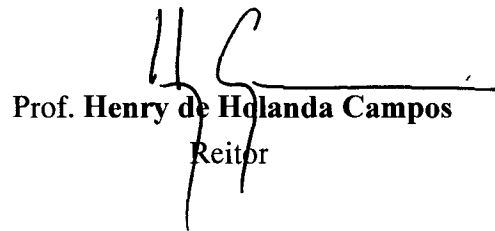 Prof. Henry de Holanda Campos
Reitor